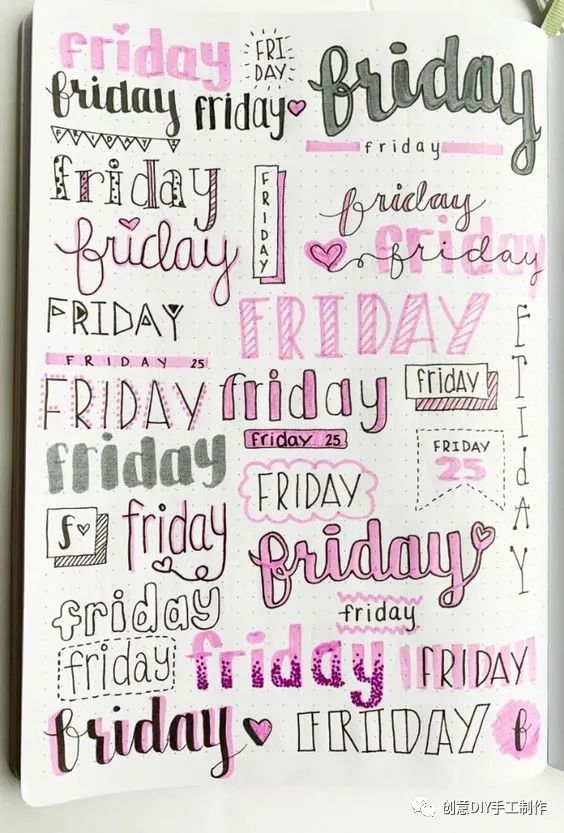 friday
FRI
DAY
friday
friday
friday
FRIDAY
friday
friday
FRIDAY
friday
friday
friday
FRIDAY
FRIDAY
FRIDAY 25
friday
FRIDAY
friday
friday 25
FRIDAY
25
frIdAY
friday
FRIDAY
f
friday
friday
friday
friday
friday
friday
FRIDAY
friday
FRIDAY
f
创意DIY手工制作